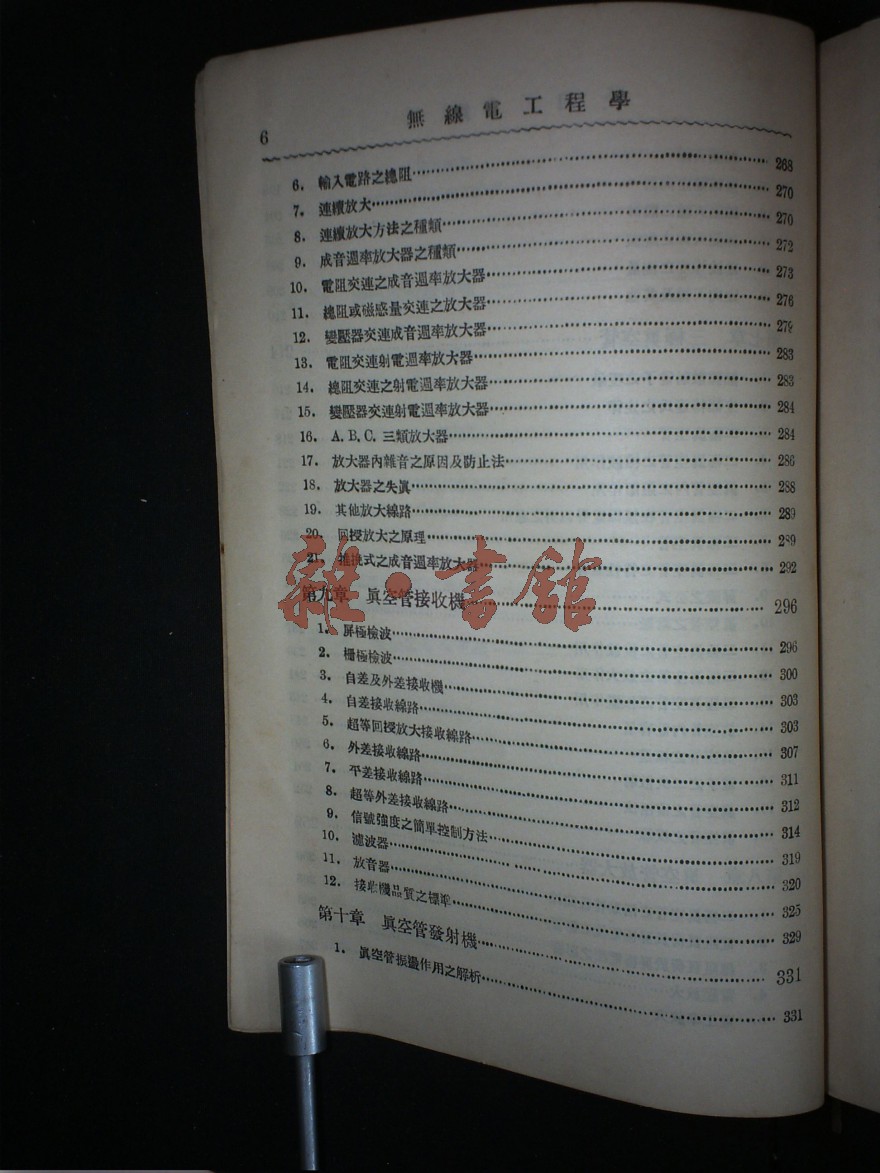 6
無線電工程學
6. 輸入電路之總阻 268
7. 連續放大 270
8. 連續放大方法之種類 270
9. 成音週率放大器之種類 272
10. 電阻交連之成音週率放大器 273
11. 總阻或磁感量交連之放大器 276
12. 變壓器交連成音週率放大器 279
13. 電阻交連射電週率放大器 283
14. 總阻交連之射電週率放大器 283
15. 變壓器交連射電週率放大器 284
16. A. B. C. 三類放大器 284
17. 放大器內雜音之原因及防止法 286
18. 放大器之失眞 288
19. 其他放大線路 289
20. 回授放大之原理 289
21. 推挽式之成音週率放大器 292
第九章 眞空管接收機 296
1. 屏極檢波 296
2. 柵極檢波 300
3. 自差及外差接收機 303
4. 自差接收線路 303
5. 超等回授放大接收線路 307
6. 外差接收線路 311
7. 平差接收線路 312
8. 超等外差接收線路 314
9. 信號強度之簡單控制方法 319
10. 濾波器 320
11. 放音器 325
12. 接收機品質之標準 329
第十章 眞空管發射機 331
1. 眞空管振盪作用之解析 331
雜·書館